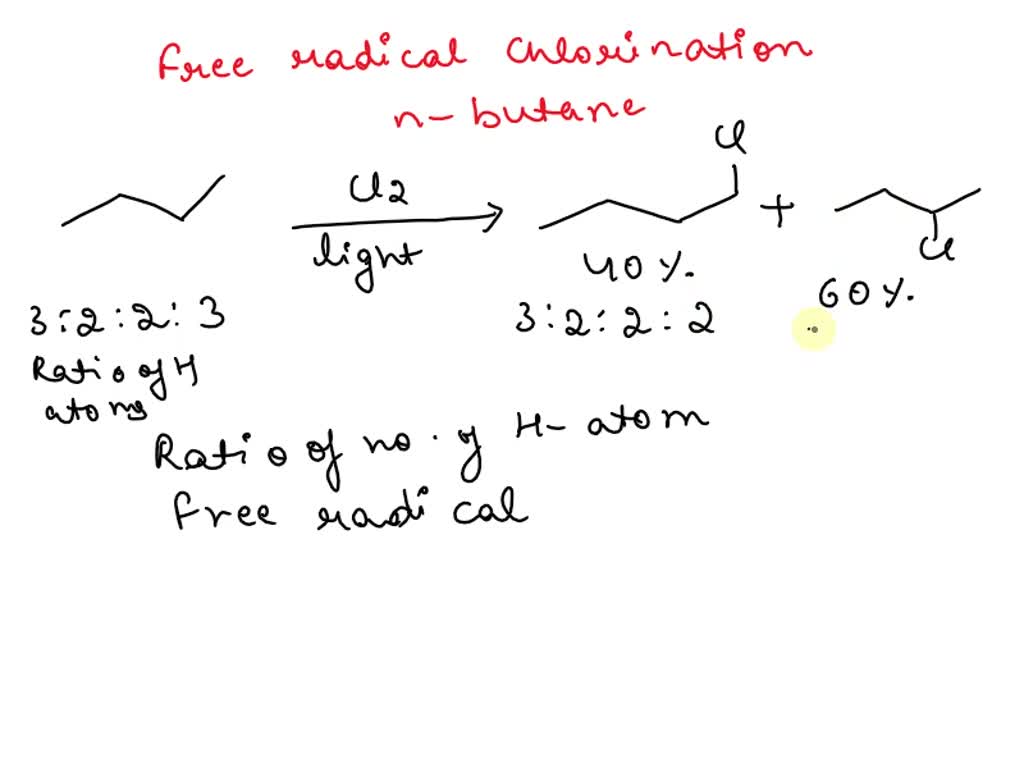 Free radical Chlorination
n- butane
Cl
Cl2
light
+
Cl
40 %.
60 %.
3:2:2:3
3:2:2:2
Ratio of H
atoms
Ratio of no. of H- atom
free radical